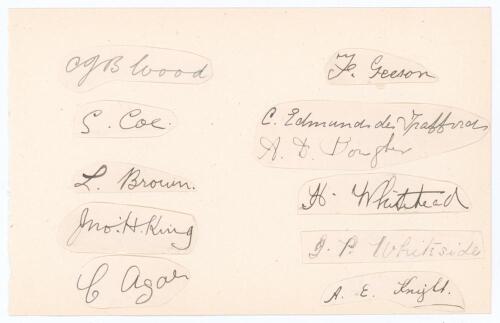 CJB Wood
S. Coe.
L. Brown.
Jno. H. King
C Agar
F. Geeson
C. Edmund de Trafford
A. D. Pougher
H. Whitehead
J. P. Whiteside
A. E. Knight.